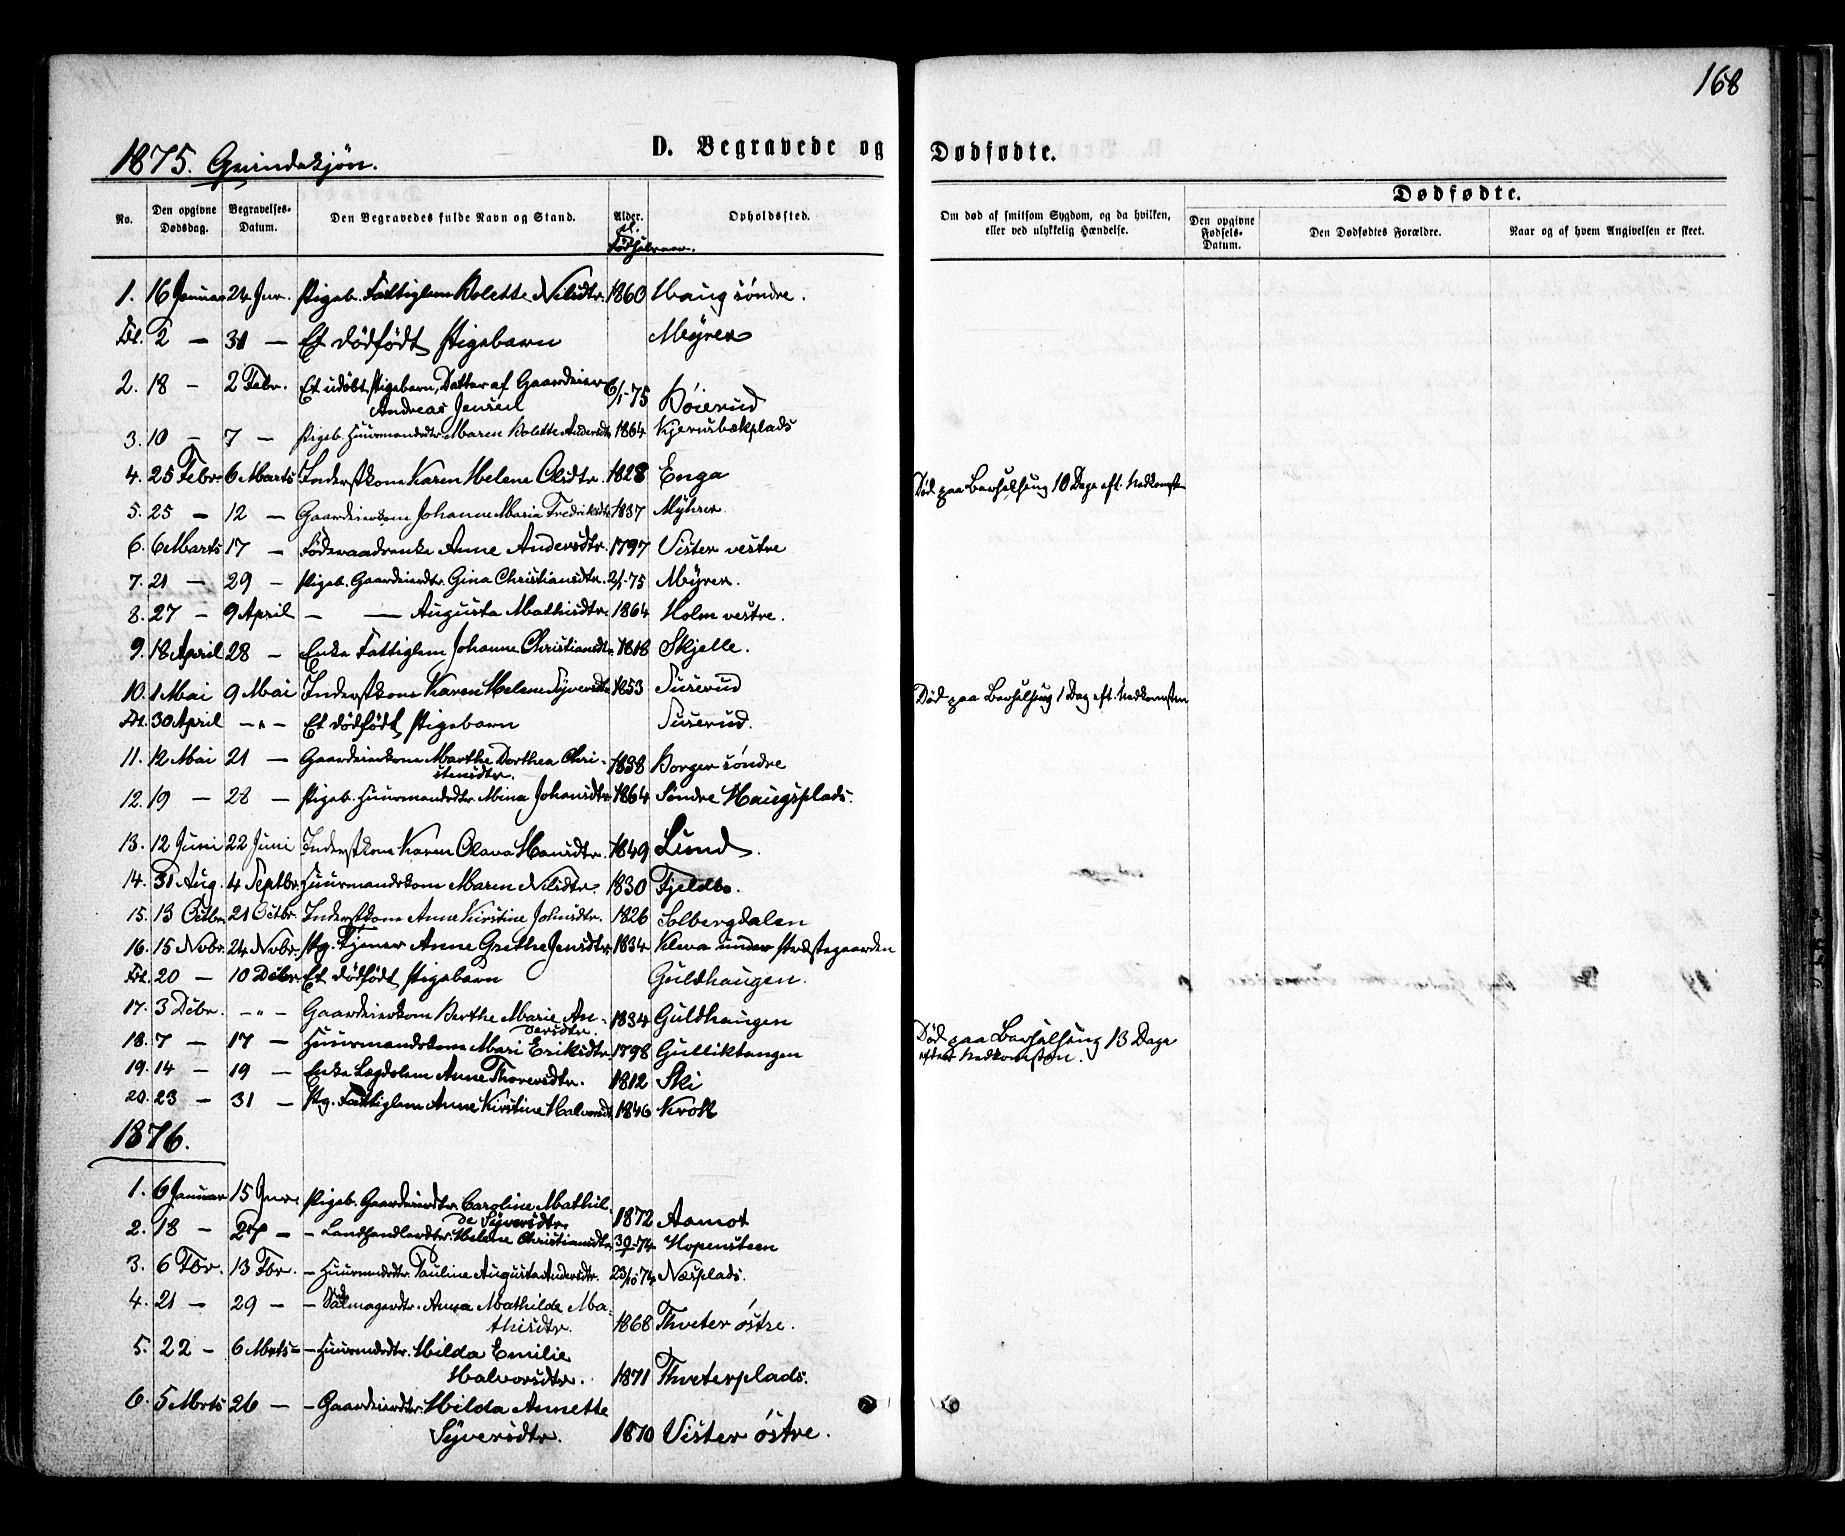 168
1875. Qvindekjøn.
D. Begravede og Dødfødte.
No.
Den opgivne Dødsdag.
Begravelses-Datum.
Den Begravedes fulde Navn og Stand.
Alder. el. Fødselsaar.
Opholdssted.
Om død af smitsom Sygdom, og da hvilken, eller ved ulykkelig Hændelse.
Dødfødte.
Den opgivne Fødsels-Datum.
Den Dødfødtes Forældre.
Naar og af hvem Angivelsen er skeet.
1. 16 Januar 24 Jnr. Pigeb. Fattiglem Bolette Nilsdtr. 1860 Haug søndre.
2 — 31 — Et dødfødt Pigebarn Myrer
2. 18 — 2 Febr. Et udøbt Pigebarn, Datter af Gaardeier 6/1-75
Andreas Jensen Høierud
3. 10 — 7 — Pigeb. Huusmandsdtr. Maren Bolette Andersdtr. 1864 Kjernsbækplads
4. 25 Febr. 6 Marts Inderstkone Karen Helene Olsdtr. 1828 Enga Død paa Barselseng 10 Dage eft. Nedkomst
5. 25 — 12 — Gaardeierkone Johanne Maria Fredriksdtr. 1837 Myhrer.
6. 6 Marts 17 — Føderaadsenke Anne Andersdtr. 1797 Vister vestre
7. 21 — 29 — Pigeb. Gaardeierdtr. Gina Christiansdtr. 2/1-75 Myrer.
8. 27 — 9 April — — Augusta Mathisdtr. 1864 Holm vestre.
9. 18 April 28 — Enke Fattiglem Johanne Christiansdtr. 1818 Skjelle.
10. 1 Mai 9 Mai Inderstkone Karen Helene Syversdtr. 1853 Furerud Død paa Barselseng 1 Dag eft. Nedkomsten
30 April — „ — Et dødfødt Pigebarn Furerud.
11. 12 Mai 21 — Gaardeierkone Marthe Dorthea Chri-
stensdtr. 1838 Borger søndre
12. 19 — 28 — Pigeb. Huusmandsdtr. Mina Johansdtr. 1864 Søndre Haugsplads.
13. 12 Juni 22 Juni Inderstkone Karen Olava Hansdtr. 1849 Lund.
14. 31 Aug. 4 Septbr. Huusmandskone Maren Nilsdtr. 1830 Fjeldbo.
15. 13 Octbr. 21 Octbr. Inderstkone Anne Kirstine Johnsdtr. 1826 Solbergdalen
16. 15 Nvbr. 24 Nvbr. Pig. Tjener Anne Grethe Jensdtr. 1834 Kleva under Præstegaarden
20 — 10 Dcbr. Et dødfødt Pigebarn Guldhaugen.
17. 3 Dcbr. — „ — Gaardeierkone Berthe Marie An-
dersdtr. 1834 Guldhaugen Død paa Barselseng 13 Dage
efter Nedkomsten.
18. 7 — 17 — Huusmandskone Mari Eriksdtr. 1798 Gulliktangen
19. 14 — 19 — Enke Lægdslem Anne Thoresdtr. 1812 Ski
20. 23 — 31 — Pig. Fattiglem Anne Kirstine Halvorsdtr. 1846 Krok
1876.
1. 6 Januar 15 Jnr. Pigeb. Gaardeierdtr. Caroline Mathil-
de Syversdtr. 1872 Aamot
2. 18 — 27 — — Landhandlerdtr. Helene Christiansdtr. 30/9-74 Hopensteen
3. 6 Fbr. 13 Fbr. — Huusmdsdtr. Pauline Augusta Andersdtr. 23/10 74 Næsplads.
4. 21 — 29 — — Salmagerdtr. Anna Mathilde Ma-
thisdtr. 1868 Thveter østre.
5. 22 — 6 Mrts — — Huusmdsdtr. Hilda Emilie
Halvorsdtr. 1871 Thveterplads.
6. 5 Mrts 26 — — Gaardeierdtr. Hilda Annette
Syversdtr. 1870 Vister østre.